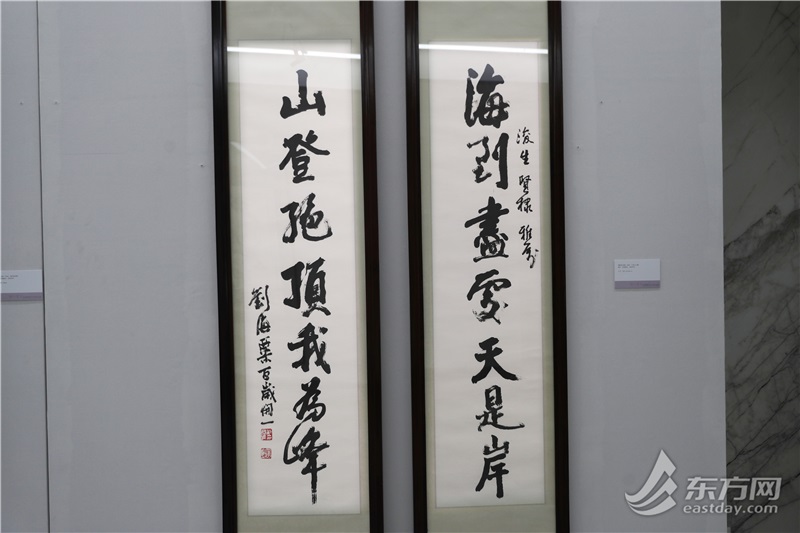 海到盡處天是岸
浚生賢棣雅屬
山登絶頂我為峰
劉海粟百歲開一
东方网
eastday.com